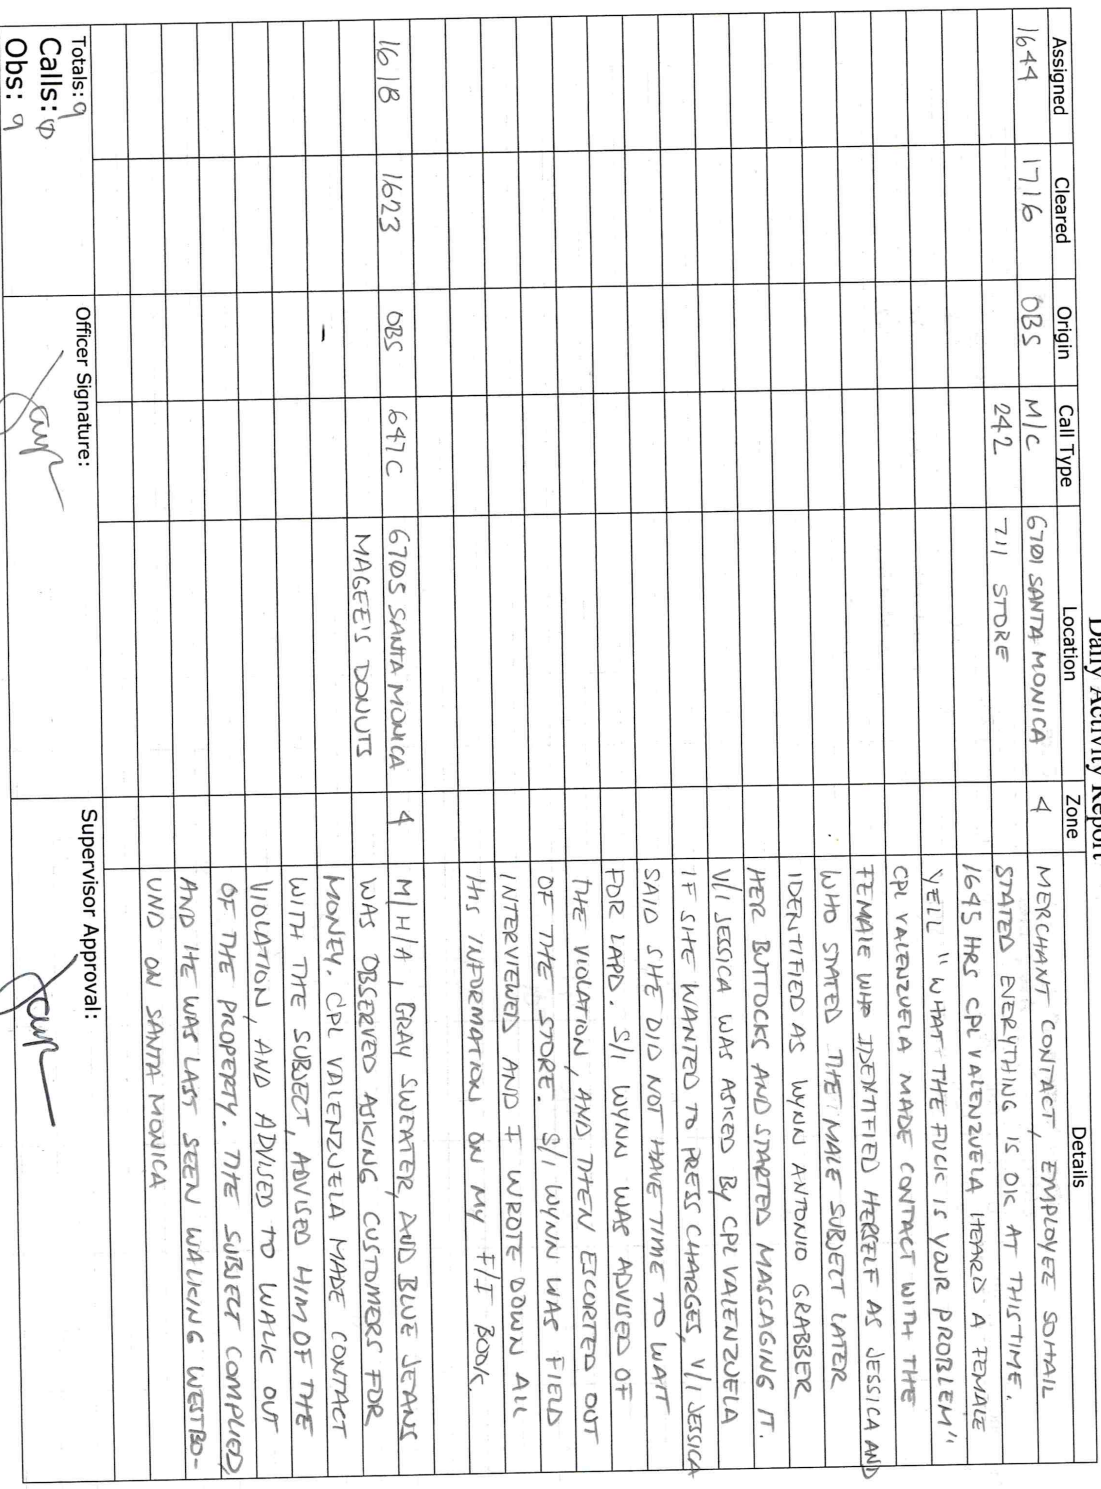 Daily Activity Report
Assigned Cleared Origin Call Type Location Zone Details
1644 1716 OBS M/C 6701 SANTA MONICA 4 MERCHANT CONTACT, EMPLOYEE SOHAIL
242 711 STORE STATED EVERYTHING IS OK AT THIS TIME.
1645 HRS CPL VALENZUELA HEARD A FEMALE
YELL "WHAT THE FUCK IS YOUR PROBLEM"
CPL VALENZUELA MADE CONTACT WITH THE
FEMALE WHO IDENTIFIED HERSELF AS JESSICA AND
WHO STATED THE MALE SUBJECT LATER
IDENTIFIED AS WYNN ANTONIO GRABBER
HER BUTTOCKS AND STARTED MASSAGING IT.
V/I JESSICA WAS ASKED BY CPL VALENZUELA
IF SHE WANTED TO PRESS CHARGES, V/I JESSICA
SAID SHE DID NOT HAVE TIME TO WAIT
FOR LAPD. S/I WYNN WAS ADVISED OF
THE VIOLATION, AND THEN ESCORTED OUT
OF THE STORE. S/I WYNN WAS FIELD
INTERVIEWED AND I WROTE DOWN ALL
HIS INFORMATION ON MY F/I BOOK.
1618 1623 OBS 647C 6705 SANTA MONICA 4 M/H/A, GRAY SWEATER, AND BLUE JEANS
MAGEE'S DONUTS WAS OBSERVED ASKING CUSTOMERS FOR
- MONEY. CPL VALENZUELA MADE CONTACT
WITH THE SUBJECT, ADVISED HIM OF THE
VIOLATION, AND ADVISED TO WALK OUT
OF THE PROPERTY. THE SUBJECT COMPLIED
AND HE WAS LAST SEEN WALKING WESTBO-
UND ON SANTA MONICA
Totals: 9 Officer Signature: Supervisor Approval:
Calls: Ø
Obs: 9